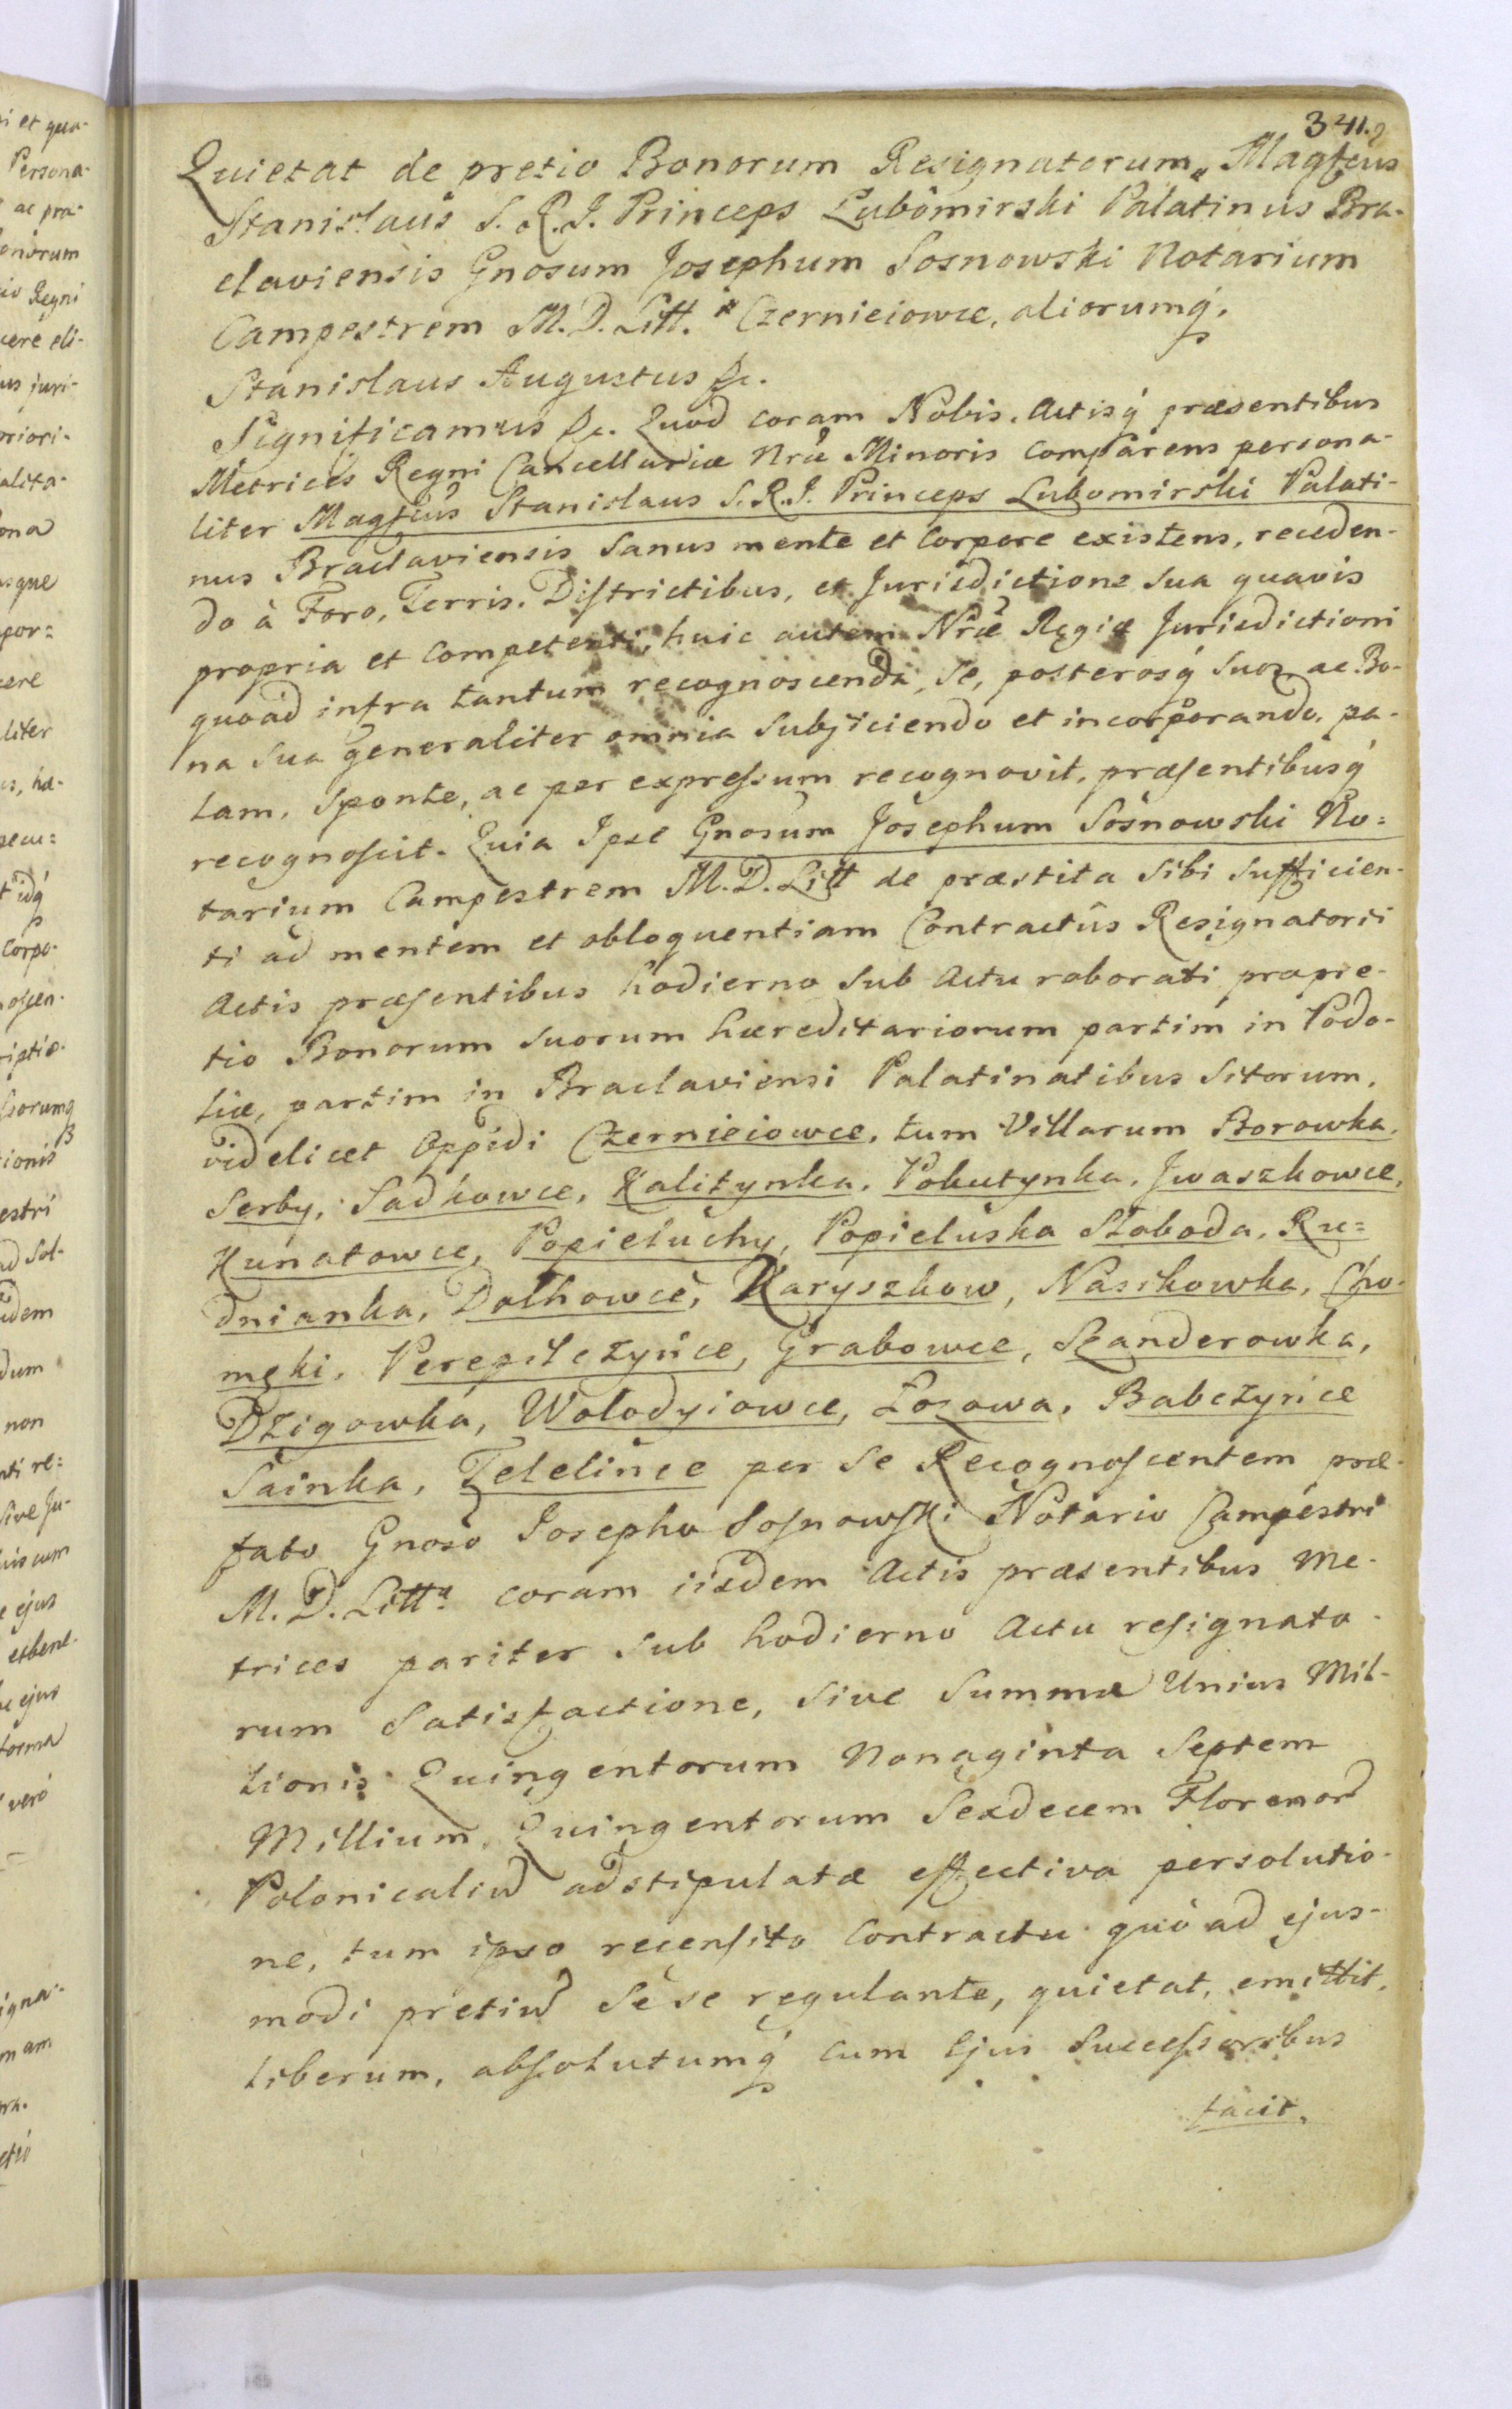 341.
Quietat de pretio Bonorum Resignatorum„ Magfcus
Stanislaus S. R. J. Princeps Lubomirski Palatinus Bra-
claviensis Gnosum Josephum Sosnowski Notarium
Campestrem M. D. Litt. Czernieiowce, aliorumq́.
Stanislaus Augustus &c.
Significamus &c. Quod coram Nobis. Actisq́ præsentibus
Metrices Regni Cancellariæ Nræ Minoris comparens persona-
liter Magfcus Stanislaus S. R. J. Princeps Lubomirski Palati-
nus Braclaviensis Sanus mente et Corpore existens, receden-
do à Foro, Terris. Districtibus, et Jurisdictione sua quavis
propria et competenti, huic autem Nræ Regiæ Jurisdictioni
quoad infra tantum recognoscenda, se, posterosq́ suos, ac Bo-
na sua generaliter omnia subjiciendo et incorporando, pa-
lam, sponte, ac per expressum recognovit, præsentibusq́
recognoscit. Quia Ipse Gnosum Josephum Sosnowski No=
tarium Campestrem M. D. Litt de præstita sibi sufficien-
ti ad mentem et obloquentiam Contractûs Resignatorii
Actis præsentibus hodierno sub actu roborati pro pre-
tio Bonorum suorum hæreditariorum partim in Podo-
liæ, partim in Braclaviensi Palatinatibus Sitorum,
videlicet Oppidi Czernieiowce, tum Villarum Borowka,
Serby, Sadkowce, Kalitynka, Pokutynka, Jwaszkowce,
Kunatowce, Popieluchy, Popieluska Słoboda, Ru=
dnianka, Dołhowce, Karyszkow, Naskowka, Cho-
męki, Perepilczyńce, Grabowce, Skanderowka,
Dzigowka, Wołodyiowce, Łozowa, Babczyńce
Sainka, Telelińce per se Recognoscentem præ-
fato Gnoso Josepho Sosnowski Notario Campestri
M. D. Littæ coram iisdem Actis præsentibus Me-
trices pariter sub hodierno Actu resignato-
rum Satisfactione, sive Summæ Unius Mil-
lionis Quingentorum Nonaginta Septem
Millium, Quingentorum Sexdecem Florenor
Polonicaliu adstipulatæ effectiva persolutio-
ne, tum ipso recensito Contractu quò ad ejus-
modi pretiu sese regulante, quietat, emittit,
liberum, absolutumq́ cum Ejus Successoribus
facit,